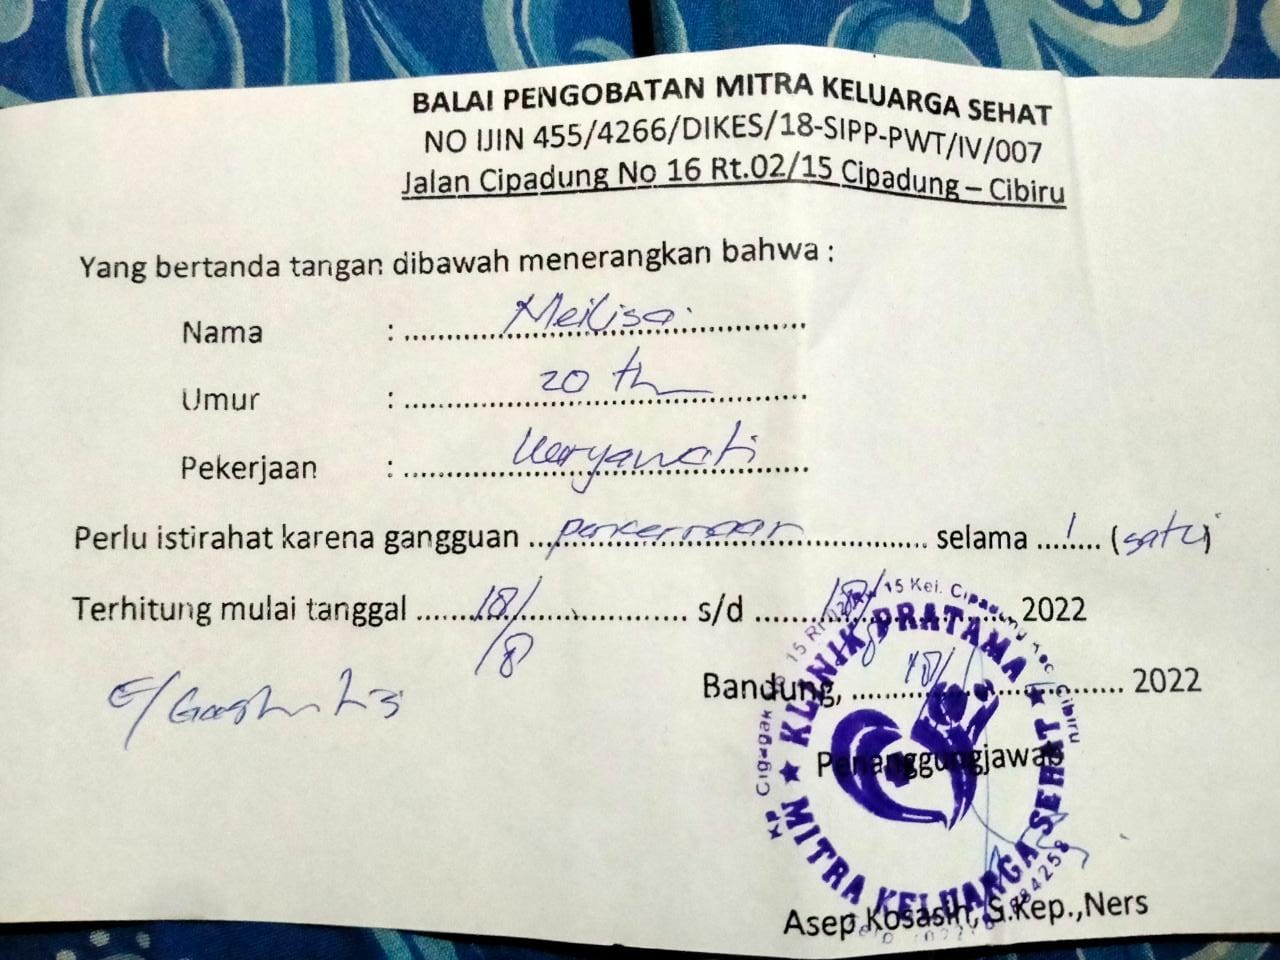 BALAI PENGOBATAN MITRA KELUARGA SEHAT
NO IJIN 455/4266/DIKES/18-SIPP-PWT/IV/007
Jalan Cipadung No 16 Rt.02/15 Cipadung – Cibiru
Yang bertanda tangan dibawah menerangkan bahwa :
Nama : Meilisa
Umur : 20 th
Pekerjaan : Karyawati
Perlu istirahat karena gangguan pencernaan selama 1 (satu)
Terhitung mulai tanggal 18/8 s/d 18/8 2022
Bandung, 18/ 2022
Penanggungjawab
KLINIK PRATAMA
MITRA KELUARGA SEHAT
Asep Kosasih, S.Kep.,Ners